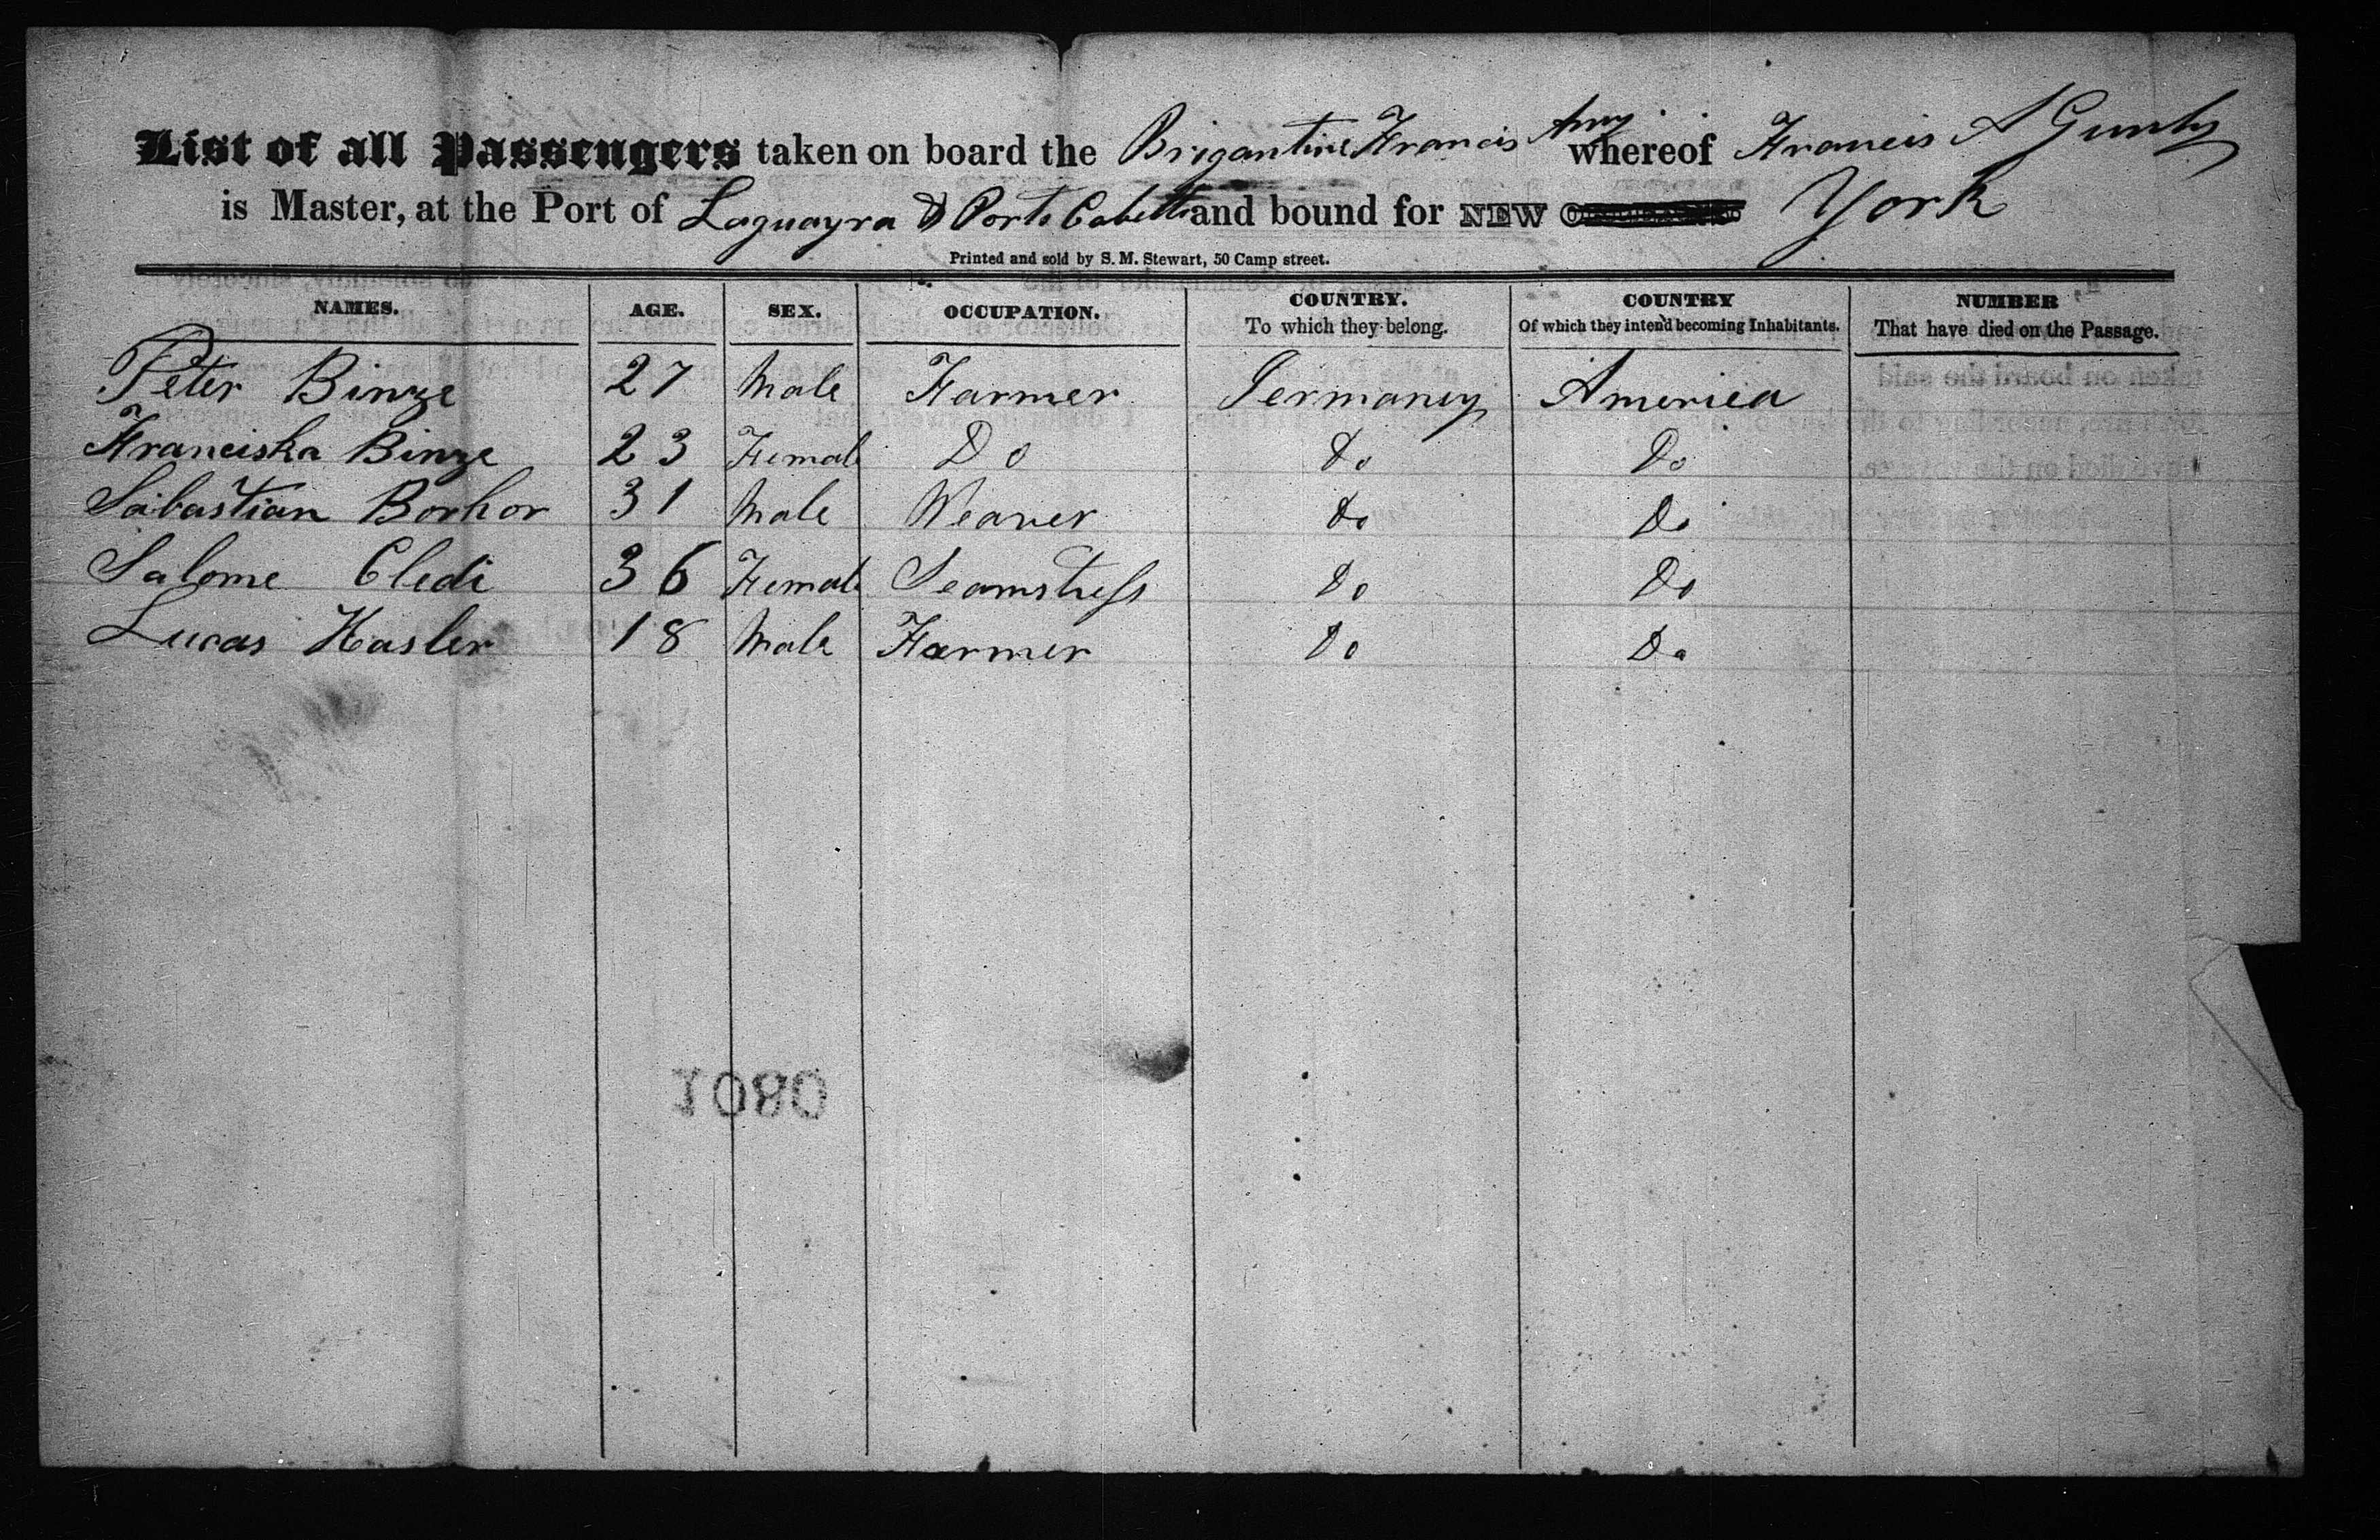 List of all Passengers taken on board the Brigantine Francis Amy whereof Francis A Gunby
is Master, at the Port of Laguayra & Porto Cabello and bound for NEW York
Printed and sold by S. M. Stewart, 50 Camp street.
NAMES. AGE. SEX. OCCUPATION. COUNTRY. To which they belong. COUNTRY Of which they intend becoming Inhabitants. NUMBER That have died on the Passage.
Peter Binze 27 Male Farmer Germany America
Franciska Binze 23 Female Do Do Do
Sabastian Borhor 31 Male Weaver Do Do
Salome Cledi 36 Female Seamstress Do Do
Lucas Hasler 18 Male Farmer Do Do
1080